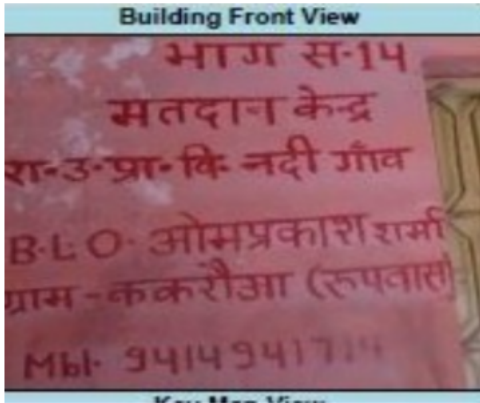 Building Front View
भाग स-14
मतदान केन्द्र
रा-उ-प्रा-वि- नदी गाँव
B.L.O. ओमप्रकाश शर्मा
ग्राम - ककरौआ (रुपवास)
Mbl.
Key Map View